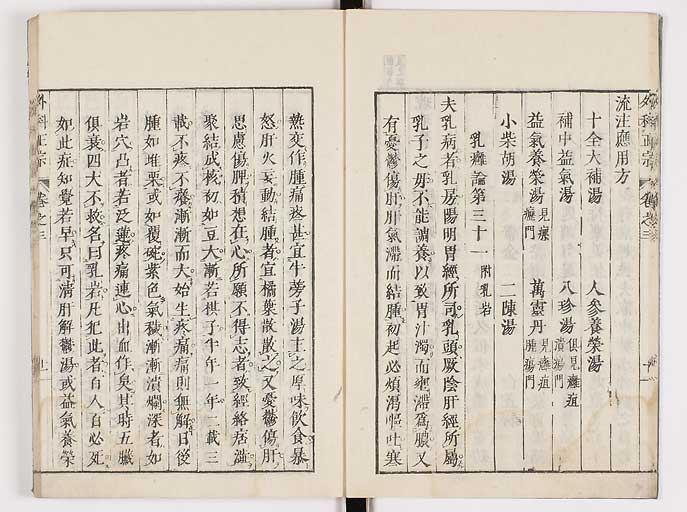 流注應用方
十全大補湯 人參養榮湯
補中益氣湯 八珍湯 俱見癰疽潰瘍門
益氣養榮湯 見瘰癧門 萬靈丹 見癰疽腫瘍門
小柴胡湯 二陳湯
乳癰論第三十一 附乳岩
夫乳病者乳房陽明胃經所司乳頭厥陰肝經所屬
乳子之母不能調養以致胃汁濁而壅滯為膿又
有憂鬱傷肝肝氣滯而結腫初起必煩渴嘔吐寒
熱交作腫痛疼甚宜牛蒡子湯主之厚味飲食暴
怒肝火妄動結腫者宜橘葉散散之又憂鬱傷肝
思慮傷脾積想在心所願不得志者致經絡痞澁
聚結成核初如豆大漸若棋子半年一年二載三
載不疼不癢漸漸而大始生疼痛痛則無解日後
腫如堆栗或如覆碗紫色氣穢漸漸潰爛深者如
岩穴凸者若泛蓮疼痛連心出血作臭其時五臟
俱衰四大不救名曰乳岩凡犯此者百人百必死
如此症知覺若早只可清肝解鬱湯或益氣養榮
外科正宗 卷之三